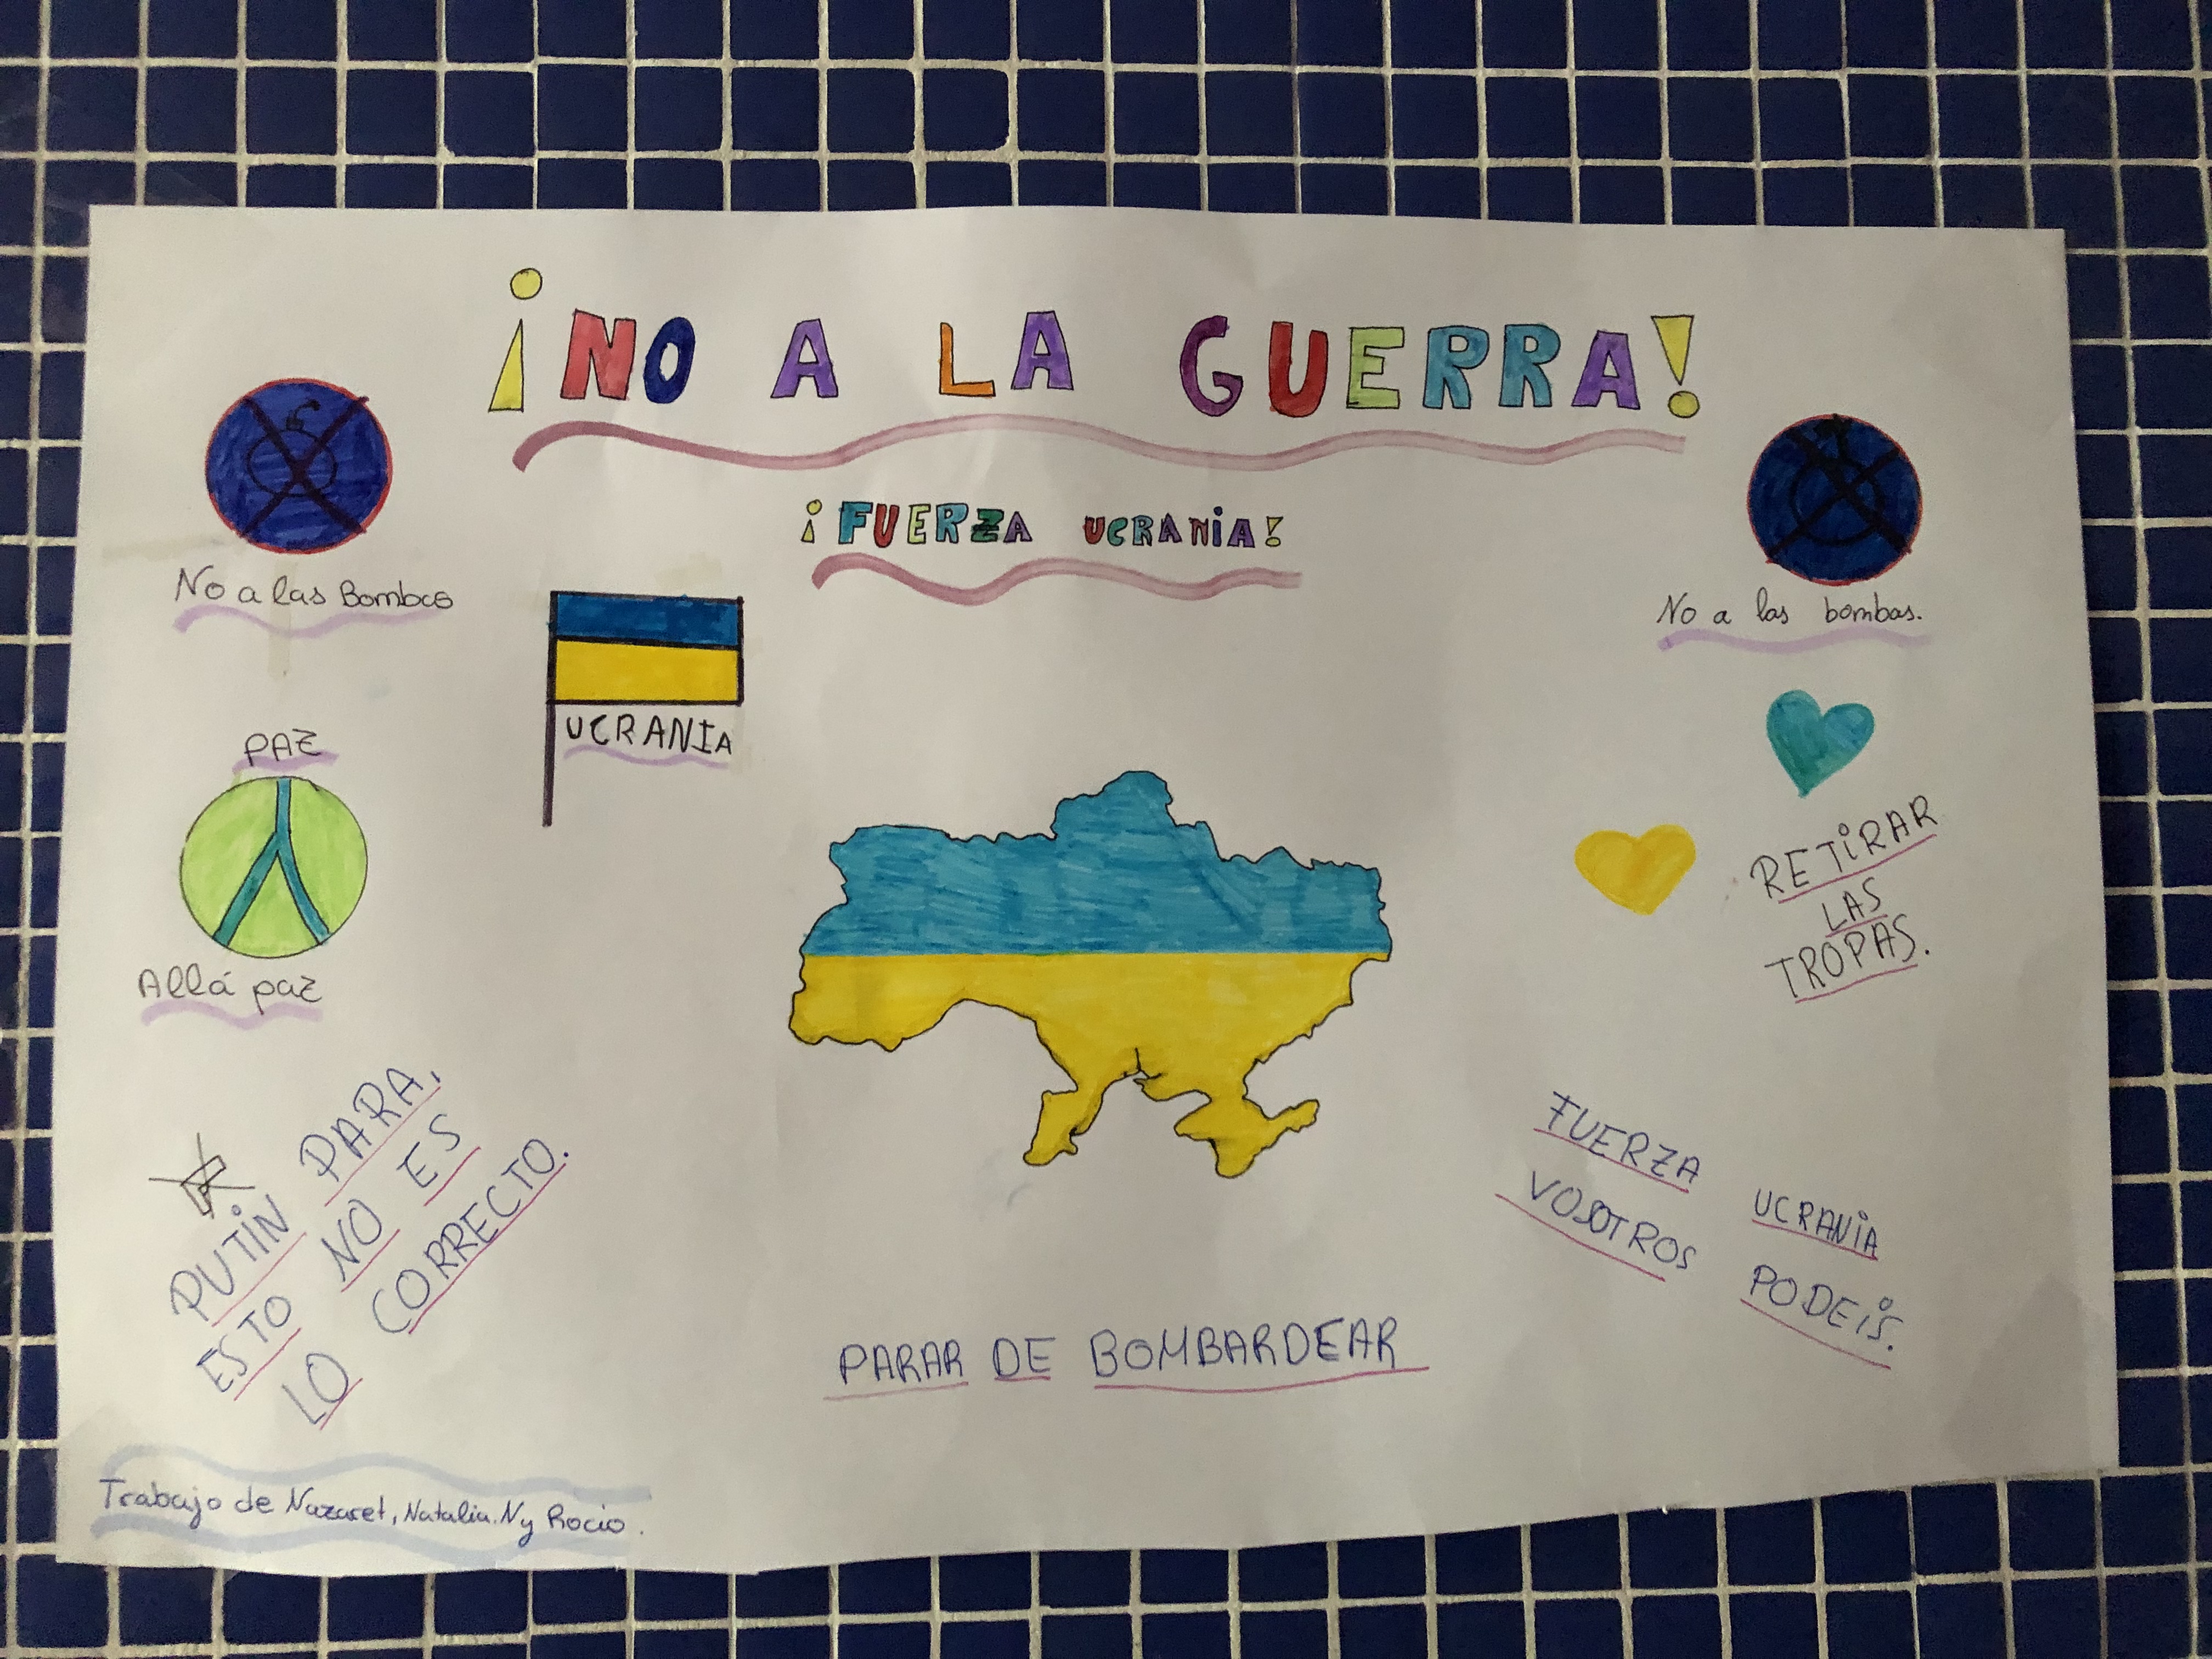 ¡NO A LA GUERRA!
¡FUERZA UCRANIA!
No a las Bombas
No a las bombas.
UCRANIA
PAZ
Allá paz
RETIRAR
LAS
TROPAS.
PUTIN PARA,
ESTO NO ES
LO CORRECTO.
FUERZA UCRANIA
VOSOTROS PODEIS.
PARAR DE BOMBARDEAR
Trabajo de Nazaret, Natalia.N y Rocio.